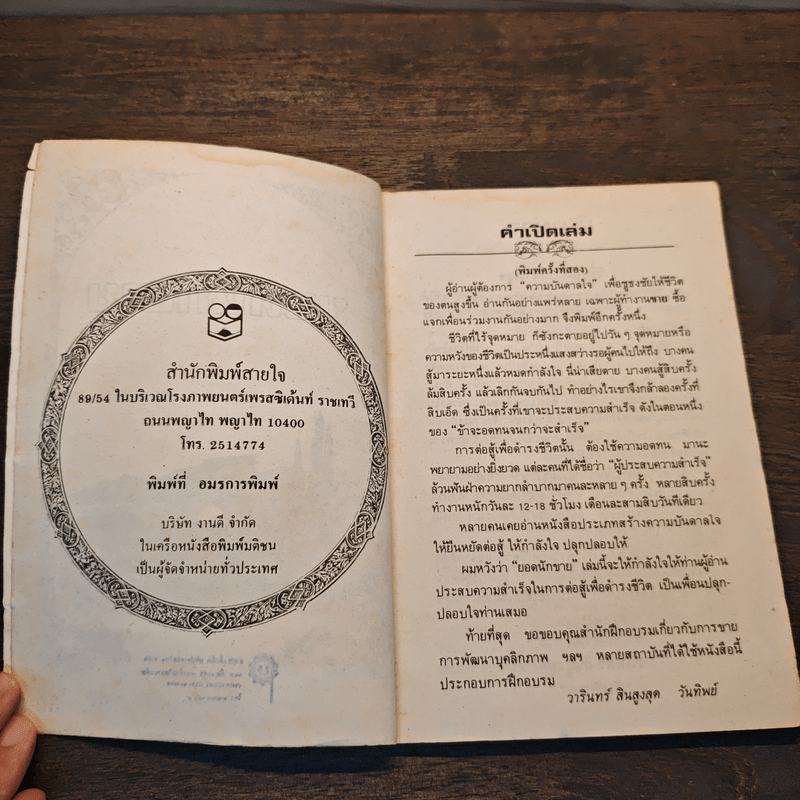 สำนักพิมพ์สายใจ
89/54 ในบริเวณโรงภาพยนตร์เพรสซิเด้นท์ ราชเทวี
ถนนพญาไท พญาไท 10400
โทร. 2514774
พิมพ์ที่ อมรการพิมพ์
บริษัท งานดี จำกัด
ในเครือหนังสือพิมพ์มติชน
เป็นผู้จัดจำหน่ายทั่วประเทศ
คำเปิดเล่ม
(พิมพ์ครั้งที่สอง)
ผู้อ่านผู้ต้องการ "ความบันดาลใจ" เพื่อชูธงชัยให้ชีวิต
ของตนสูงขึ้น อ่านกันอย่างแพร่หลาย เฉพาะผู้ทำงานขาย ซื้อ
แจกเพื่อนร่วมงานกันอย่างมาก จึงพิมพ์อีกครั้งหนึ่ง
ชีวิตที่ไร้จุดหมาย ก็ซังกะตายอยู่ไปวัน ๆ จุดหมายหรือ
ความหวังของชีวิตเป็นประหนึ่งแสงสว่างรอผู้คนไปให้ถึง บางคน
สู้มาระยะหนึ่งแล้วหมดกำลังใจ นี่น่าเสียดาย บางคนสู้สิบครั้ง
ล้มสิบครั้ง แล้วเลิกกันจบกันไป ทำอย่างไรเขาจึงกล้าลองครั้งที่
สิบเอ็ด ซึ่งเป็นครั้งที่เขาจะประสบความสำเร็จ ดังในตอนหนึ่ง
ของ "ข้าจะอดทนจนกว่าจะสำเร็จ"
การต่อสู้เพื่อดำรงชีวิตนั้น ต้องใช้ความอดทน มานะ
พยายามอย่างยิ่งยวด แต่ละคนที่ได้ชื่อว่า "ผู้ประสบความสำเร็จ"
ล้วนฟันฝ่าความยากลำบากมาคนละหลาย ๆ ครั้ง หลายสิบครั้ง
ทำงานหนักวันละ 12-18 ชั่วโมง เดือนละสามสิบวันทีเดียว
หลายคนเคยอ่านหนังสือประเภทสร้างความบันดาลใจ
ให้ยืนหยัดต่อสู้ ให้กำลังใจ ปลุกปลอบให้
ผมหวังว่า "ยอดนักขาย" เล่มนี้จะให้กำลังใจให้ท่านผู้อ่าน
ประสบความสำเร็จในการต่อสู้เพื่อดำรงชีวิต เป็นเพื่อนปลุก-
ปลอบใจท่านเสมอ
ท้ายที่สุด ขอขอบคุณสำนักฝึกอบรมเกี่ยวกับการขาย
การพัฒนาบุคลิกภาพ ฯลฯ หลายสถาบันที่ได้ใช้หนังสือนี้
ประกอบการฝึกอบรม
วารินทร์ สินสูงสุด วันทิพย์